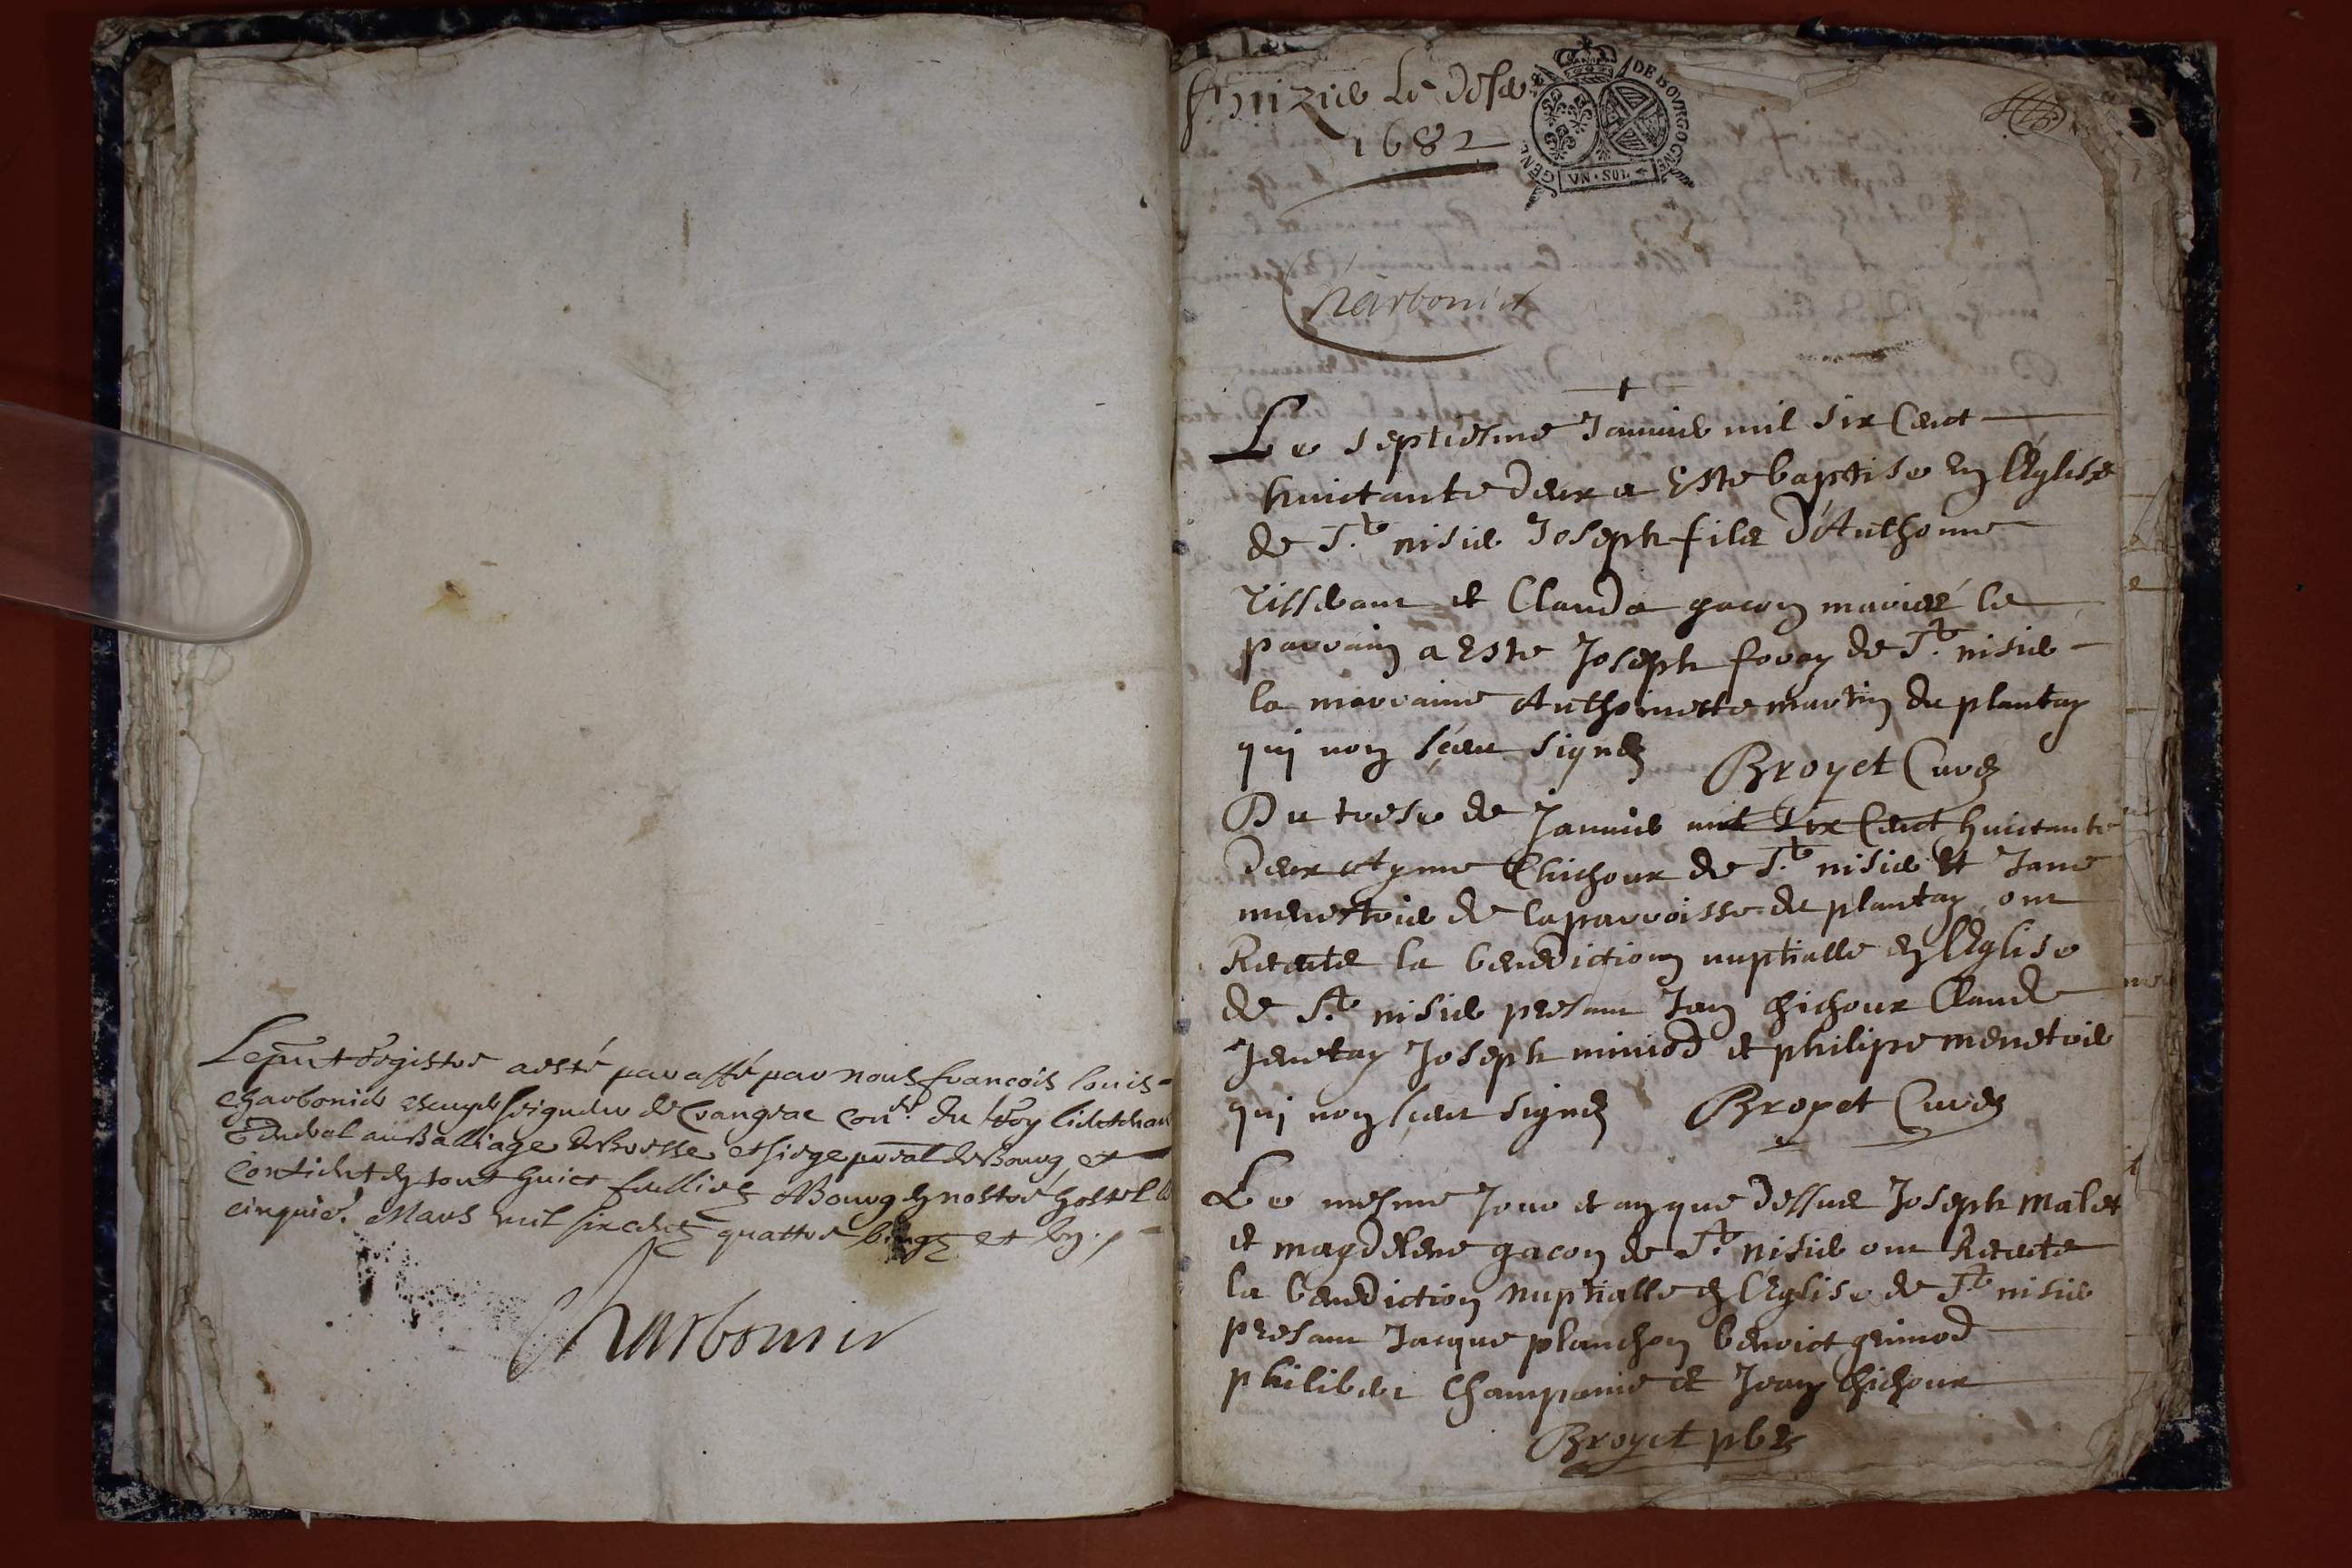 Le pnt registre a esté paraffé par nous francois louis
Charbonier escuyer seigneur de Crangeac conr. du Roy lieutenan
General au Balliage de Bresse et siege pral de Bourg, et
contient en tout huict feullies A Bourg en nostre hostel le
cinquie. Mars mil six cents quattre vingts et un
Charbonier
St nizier Le Desert
1682
GENE DE BOVRGOGNE
VN SOL
Charbonier
Le septiesme Januier mil six Cent
huictante deux a Este baptise en lEglise
de St. nisier Joseph fils d'Anthoine
Tisserant et Clauda gacon mariés le
parrain a Este Joseph foray de St. nisier
la marraine Anthoinette martin du plantay
qui non sçeu signer Broyet Curez
Du trese de Januier mil six Cent huictante
deux Ayme Chichoux de St. nisier et Jane
menestrier de la parroisse du plantay ont
Receute la benediction nuptialle en lEglise
de St. nisier presant Jan chichoux Claude
Jeantay Joseph miniod et philipe menetrier
qui non sceu signer Broyet Curez
Le mesme Jour et an que dessus Joseph malet
et magdelene gacon de St. nisier ont Receute
la benediction nuptialle en lEglise de St nisier
presant Jacque planchon benoict grimod
philibert Champanie et Jean chichoux
Broyet pbr